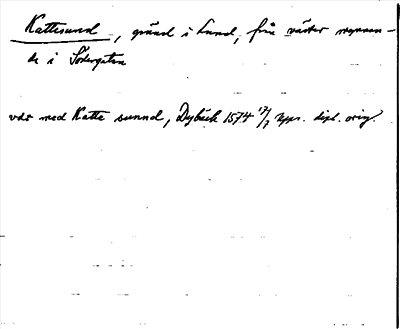 Kattesund, gränd i Lund, från väster mynnan-
de i Södergatan
vdr ned Katte sunnd, Dybeck 1574 17/7 Upps. dipl. orig.